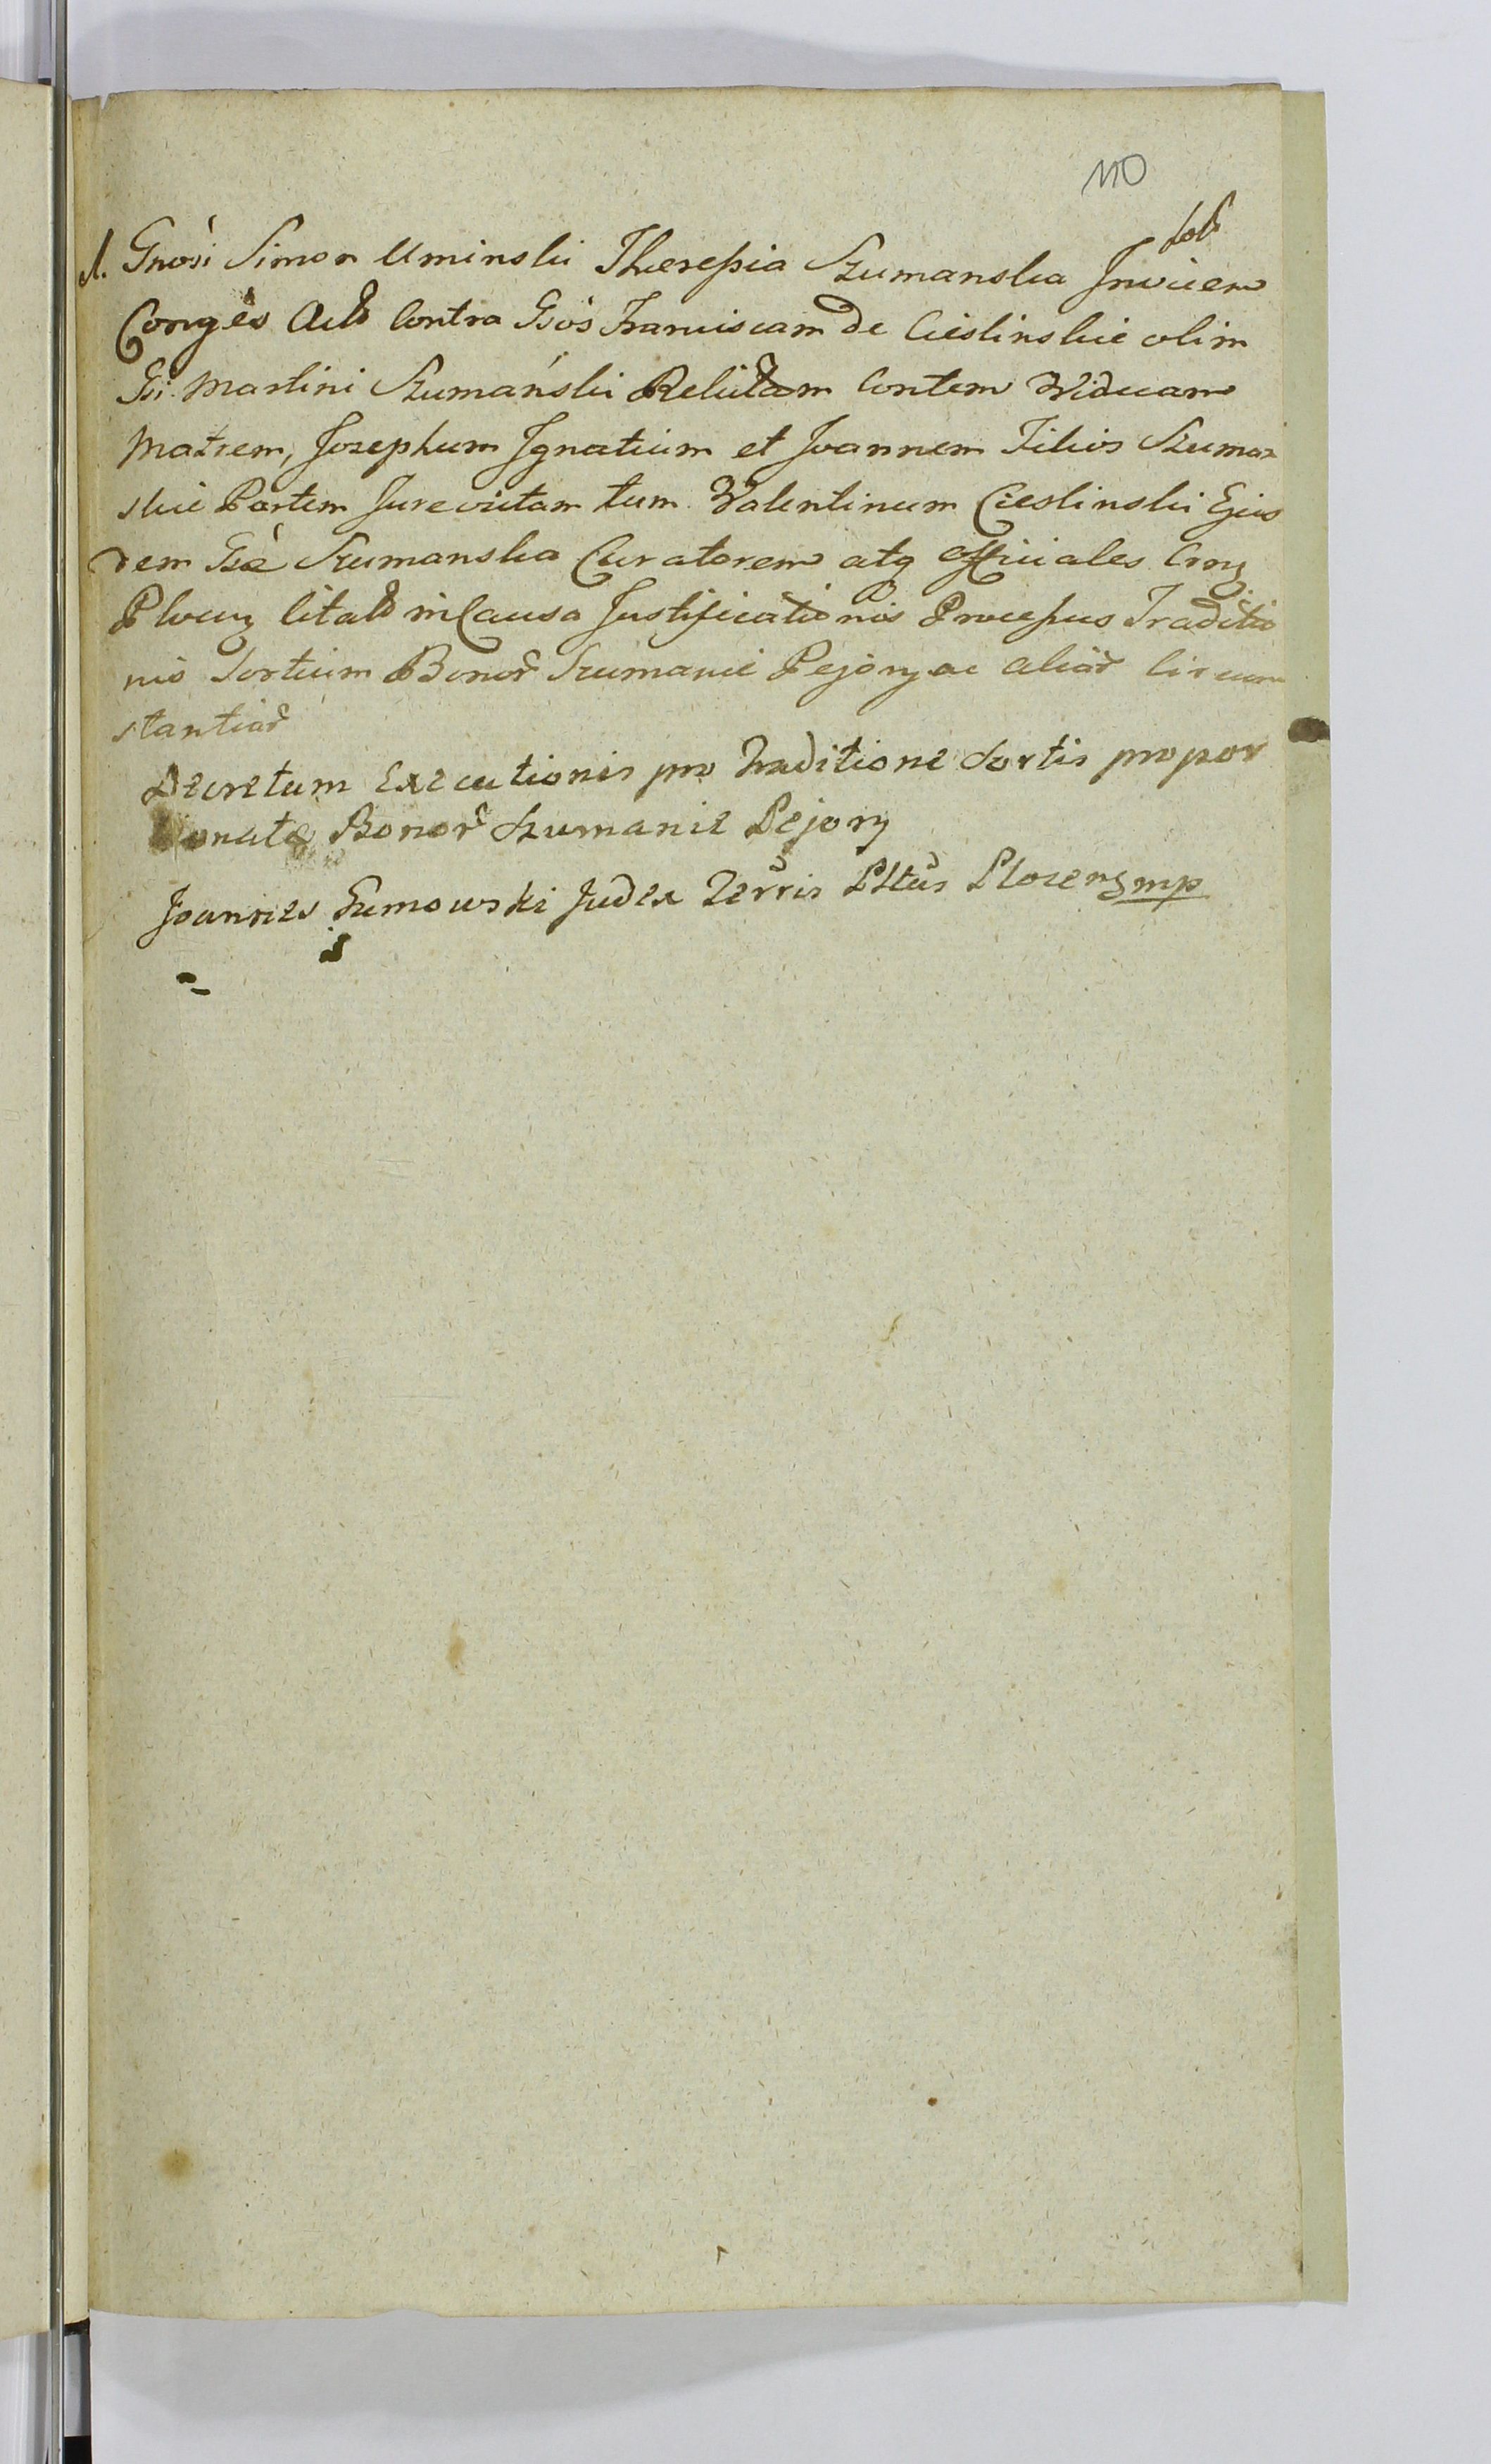 110
1. Gnosi Simon Uminski Theressia Szumanska Invicem
Conges Acts Contra Gsos Franciscam de Cieslinskie olim
Gsi Martini Szumański Relictam Contem Viduam
Matrem, Josephum Ignatium et Joannem Filios Szuman
skie Partem Jurevictam tum Valentinum Cieslinski Ejus
dem Gsæ Szumanska Curatorem atq Officiales
Plocen Citats in Causa Justificationis Processus Traditio
nis Sortium Bonor Szumanie Pejory ac aliar circum
stantiar
Decretum Executionis pro Traditione Sortis propor
tionatæ Bonor Szumanie Pejory
Joannes Gumowski Judex Terris Pltus Plocens mp